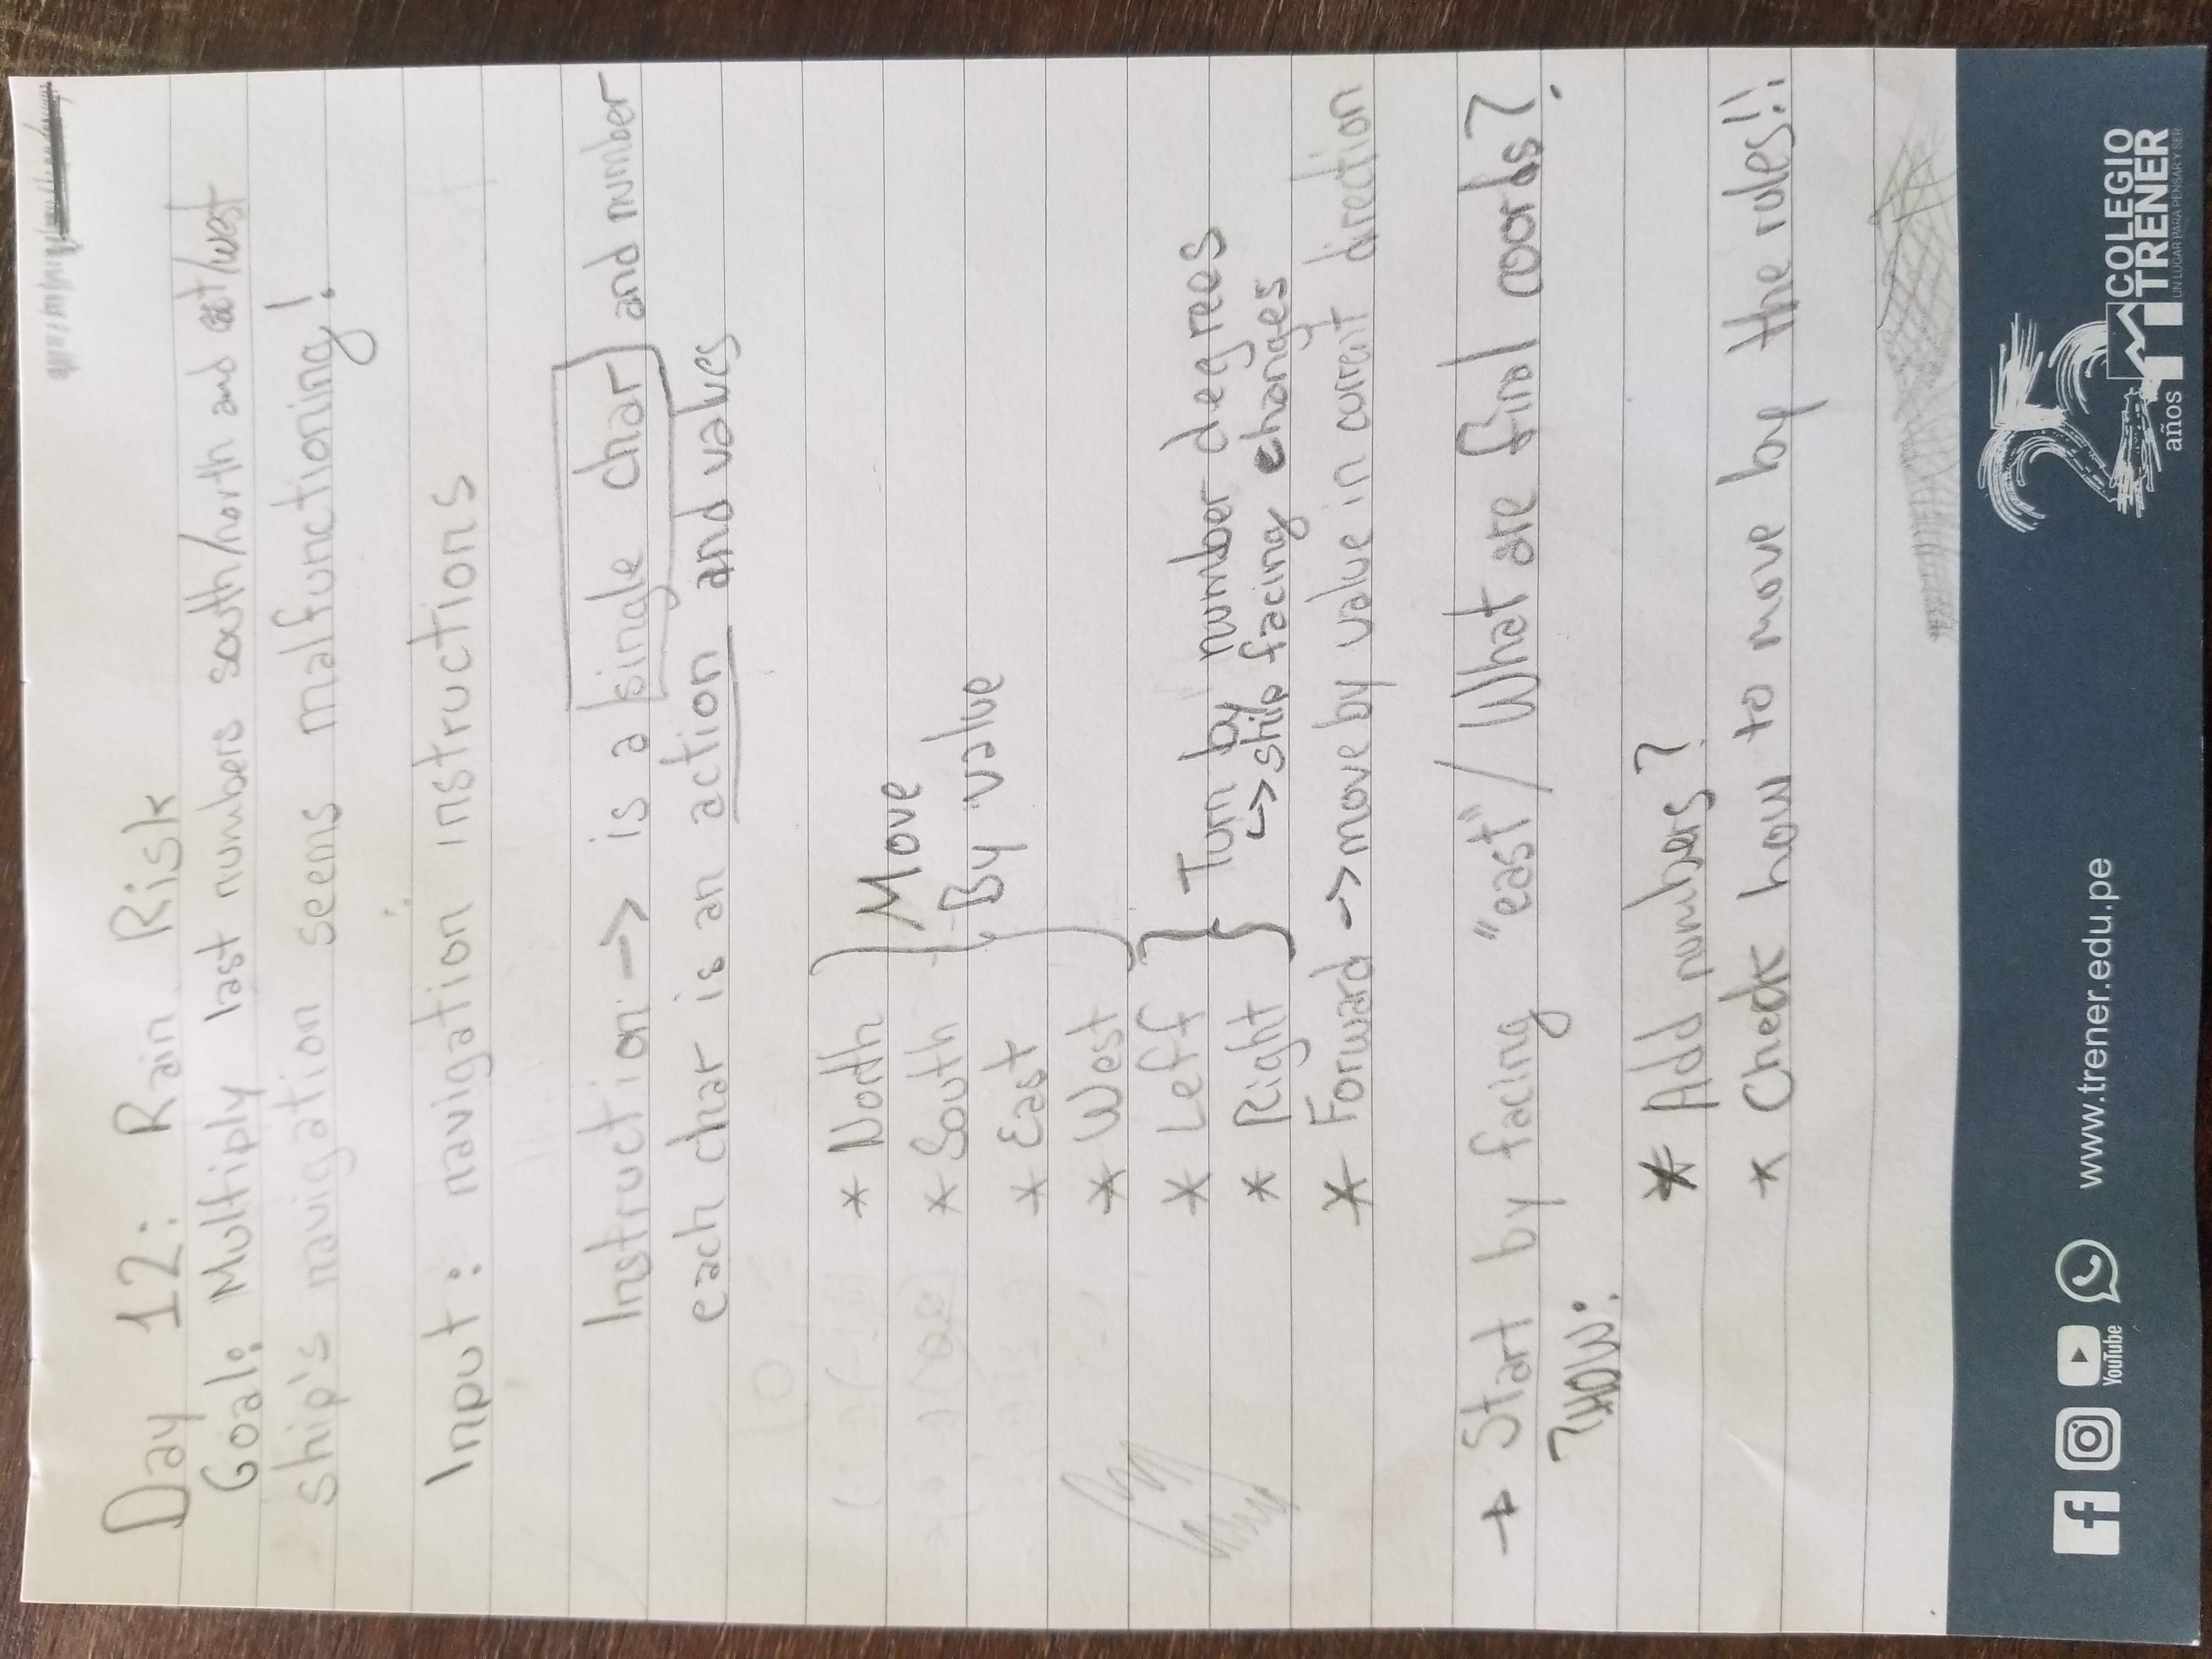 Day 12: Rain Risk
Goal: Multiply last numbers south/north and east/west
ship's navigation seems malfunctioning!
Input: navigation instructions
Instruction -> is a single char and number
each char is an action and values
* North
* South
* East
* West
Move
By value
* Left
* Right
Turn by number degrees
↳ ship facing changes
* Forward -> move by value in current direction
→ Start by facing "east" / What are final coords?
?HOW:
* Add numbers?
* Check how to move by the rules!!
YouTube
www.trener.edu.pe
25
años
COLEGIO
TRENER
UN LUGAR PARA PENSAR Y SER